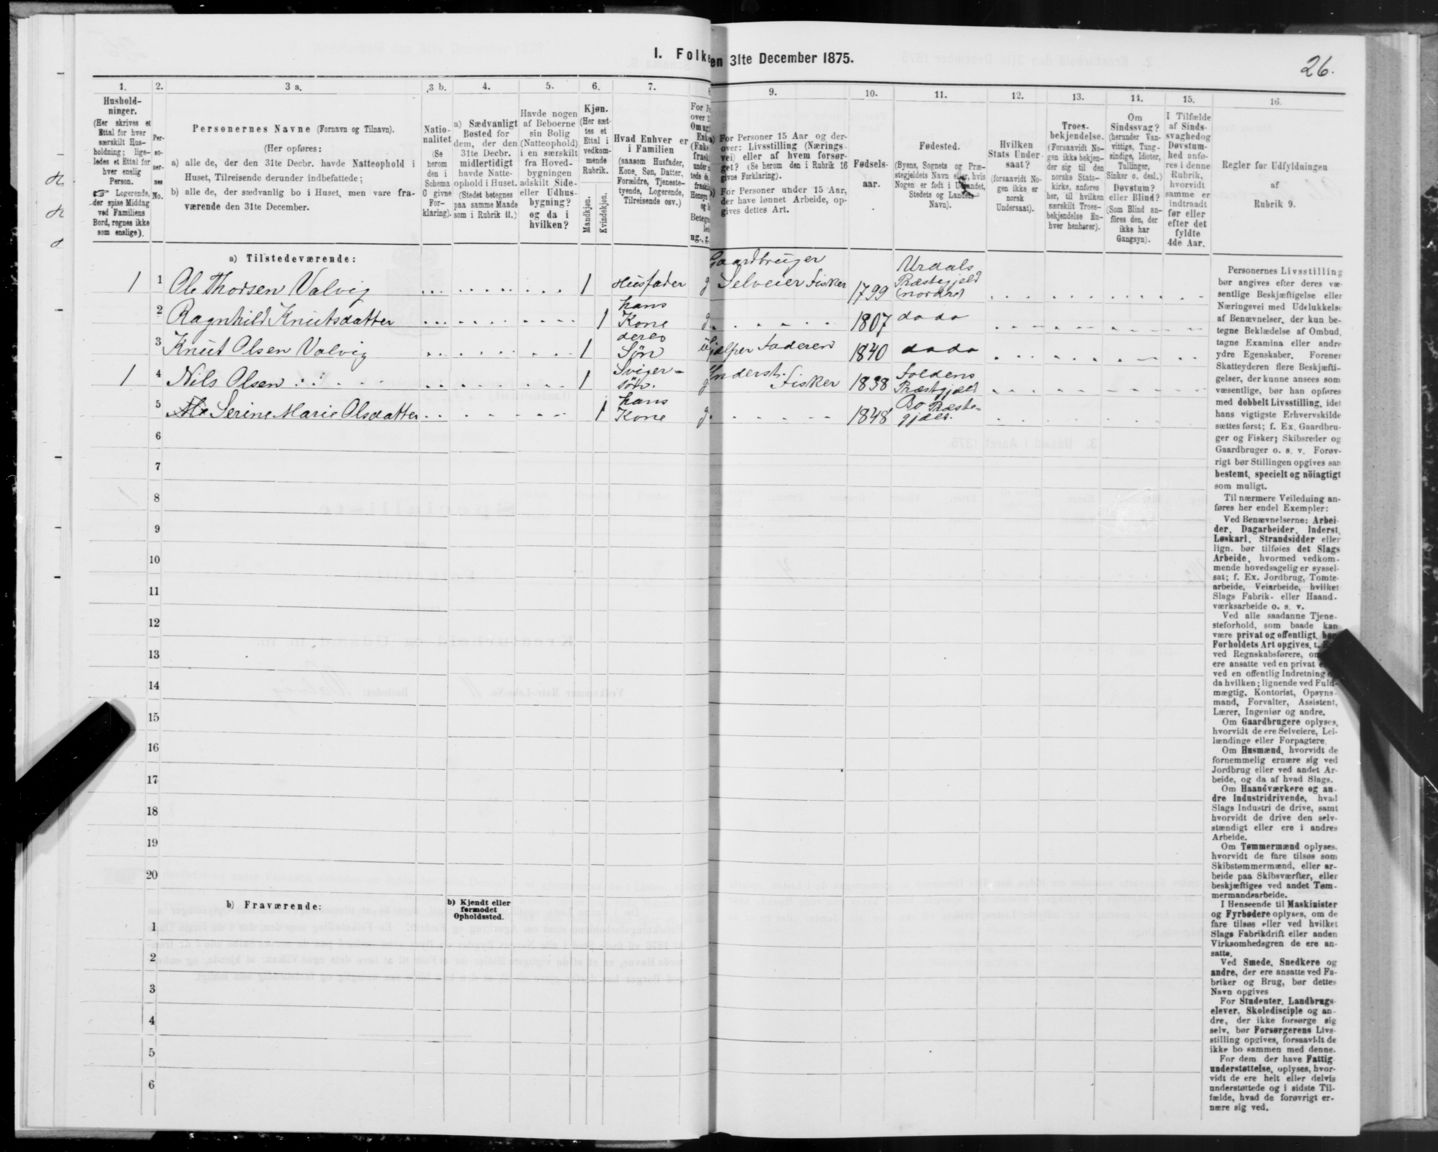 I. Folke
en 31te December 1875.
26.
1. 2. 3 a. 3 b. 4. 5. 6. 7. 8 9. 10. 11. 12. 13. 14. 15. 16.
Hushold-
ninger.
(Her skrives et
Ettal for hver
særskilt Hus-
holdning; lige-
ledes et Ettal for
hver enslig
Person.
Logerende,
der spise Middag
ved Familiens
Bord, regnes ikke
som enslige).
Per-
so-
ner-
nes
No.
Personernes Navne (Fornavn og Tilnavn).
(Her opføres:
a) alle de, der den 31te Decbr. havde Natteophold i
Huset, Tilreisende derunder indbefattede;
b) alle de, der sædvanlig bo i Huset, men vare fra-
værende den 31te December.
Natio-
nalitet
(Se
herom
den i
Schema
C givne
For-
klaring).
a) Sædvanligt
Bosted for
dem, der den
31te Decbr.
midlertidigt
havde Natte-
ophold i Huset.
(Stedet betegnes
paa samme Maade
som i Rubrik 11.)
Havde nogen
af Beboerne
sin Bolig
(Natteophold)
i en særskilt
fra Hoved-
bygningen
adskilt Side-
eller Udhus-
bygning?
og da i
hvilken?
Kjøn.
(Her sæt-
tes et
Ettal i
vedkom-
mende
Rubrik.
Mandkjøn.
Kvindekjøn.
Hvad Enhver er
i Familien
(saasom Husfader,
Kone, Søn, Datter,
Forældre, Tjeneste-
tyende, Logerende,
Tilreisende osv.)
For Personer 15 Aar og der-
over: Livsstilling (Nærings-
vei) eller af hvem forsør-
get? (Se herom den i Rubrik 16
givne Forklaring).
For Personer under 15 Aar,
der have lønnet Arbeide, op-
gives dettes Art.
Fødsels-
aar.
Fødested.
(Byens, Sognets og Præ-
stegjeldets Navn eller, hvis
Nogen er født i Udlandet,
Stedets og Landets
Navn).
Hvilken
Stats Under-
saat?
(forsaavidt No-
gen ikke er
norsk
Undersaat).
Troes-
bekjendelse.
(Forsaavidt No-
gen ikke bekjen-
der sig til den
norske Stats-
kirke, anføres
her, til hvilken
særskilt Troes-
bekjendelse En-
hver henhører).
Om
Sindssvag?
(herunder Van-
vittige, Tung-
sindige, Idioter,
Tullinger,
Sinker o. desl.)
Døvstum?
eller Blind?
(Som Blind an-
føres den, der
ikke har
Gangsyn).
I Tilfælde
af Sinds-
svaghed og
Døvstum-
hed anfø-
res i denne
Rubrik,
hvorvidt
samme er
indtraadt
før eller
efter det
fyldte
4de Aar.
Regler for Udfyldningen
af
Rubrik 9.
a) Tilstedeværende:
1 1 Ole Thorsen Valvig 1 Husfader g Gaardbruger Selveier Fisker 1799 Urdals Præstegjeld (nordho)
2 Ragnhild Knutsdatter 1 hans Kone g 1807 do do
3 Knut Olsen Valvig 1 deres Søn u hjælper Faderen 1840 do do
1 4 Nils Olsen 1 Sviger-søn. g Inderst. Fisker 1838 Foldens Præstgjeld
5 Serine Marie Olsdatter 1 hans Kone g 1848 Bo Præste-gjæld.
6
7
8
9
10
11
12
13
14
15
16
17
18
19
20
b) Fraværende:
b) Kjendt eller
formodet
Opholdssted.
1
2
3
4
5
6
Personernes Livsstilling
bør angives efter deres væ-
sentlige Beskjæftigelse eller
Næringsvei med Udelukkelse
af Benævnelser, der kun be-
tegne Beklædelse af Ombud,
tagne Examina eller andre
ydre Egenskaber. Forener
Skatteyderen flere Beskjæfti-
gelser, der kunne ansees som
væsentlige, bør han opføres
med dobbelt Livsstilling, idet
hans vigtigste Erhvervskilde
sættes først; f. Ex. Gaardbru-
ger og Fisker; Skibsreder og
Gaardbruger o. s. v. Forøv-
rigt bør Stillingen opgives saa
bestemt, specielt og nöiagtigt
som muligt.
Til nærmere Veiledning an-
føres her endel Exempler:
Ved Benævnelserne: Arbei-
der, Dagarbeider, Inderst,
Løskarl, Strandsidder eller
lign. bør tilføies det Slags
Arbeide, hvormed vedkom-
mende hovedsagelig er syssel-
sat; f. Ex. Jordbrug, Tomte-
arbeide, Veiarbeide, hvilket
Slags Fabrik- eller Haand-
værksarbeide o. s. v.
Ved alle saadanne Tjene-
steforhold, som baade kan
være privat og offentligt, bør
Forholdets Art opgives, t. Ex.
ved Regnskabsførere, om de
ere ansatte ved en privat eller
ved en offentlig Indretning og
da hvilken; lignende ved Fuld-
mægtig, Kontorist, Opsyns-
mand, Forvalter, Assistent,
Lærer, Ingeniør og andre.
Om Gaardbrugere oplyses,
hvorvidt de ere Selveiere, Lei-
lændinge eller Forpagtere.
Om Husmænd, hvorvidt de
fornemmelig ernære sig ved
Jordbrug eller ved andet Ar-
beide, og da af hvad Slags.
Om Haandværkere og an-
dre Industridrivende, hvad
Slags Industri de drive, samt
hvorvidt de drive den selv-
stændigt eller ere i andres
Arbeide.
Om Tømmermænd oplyses,
hvorvidt de fare tilsøs som
Skibstømmermænd, eller ar-
beide paa Skibsværfter, eller
beskjæftiges ved andet Tøm-
mermandsarbeide.
I Henseende til Maskinister
og Fyrbødere oplyses, om de
fare tilsøs eller ved hvilket
Slags Fabrikdrift eller anden
Virksomhedsgren de ere an-
satte.
Ved Smede, Snedkere og
andre, der ere ansatte ved Fa-
briker og Brug, bør dettes
Navn opgives
For Studenter, Landbrugs-
elever, Skoledisciple og an-
dre, der ikke forsørge sig
selv, bør Forsørgerens Livs-
stilling opgives, forsaavidt de
ikke bo sammen med denne.
For dem der have Fattig-
understøttelse, oplyses, hvor-
vidt de ere helt eller delvis
understøttede og i sidste Til-
fælde, hvad de forøvrigt er-
nære sig ved.